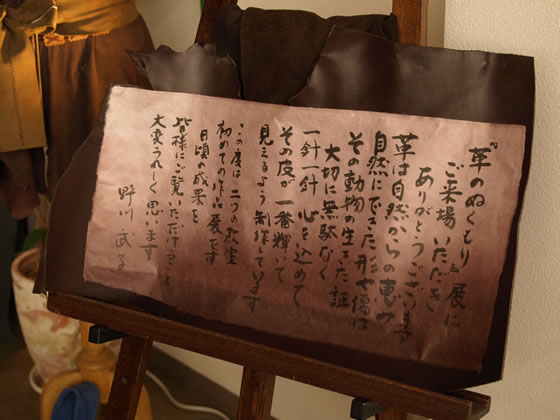 『革のぬくもり』展に
ご来場いただき
ありがとうございます
革は自然からの恵み
自然にできた形や傷は
その動物の生きた証
大切に無駄なく
一針一針 心を込めて
その皮が一番輝いて
見えるよう制作しています
この度は二つの教室
初めての作品展です
日頃の成果を
皆様にご覧いただけること
大変うれしく思います
野川 武